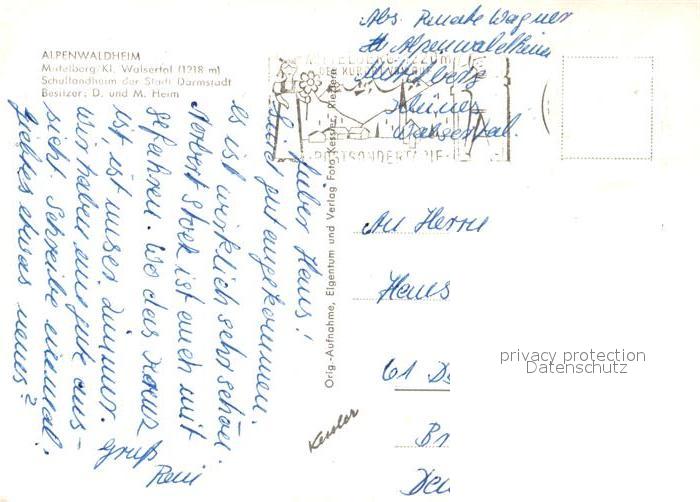 ALPENWALDHEIM
Mittelberg/Kl. Walsertal (1218 m)
Schullandheim der Stadt Darmstadt
Besitzer: D. und M. Heim
Lieber Hans!
Sind gut angekommen.
Es ist wirklich sehr schön.
Norbert Stock ist auch mit
gefahren. Wo das Kreuz
ist, ist unser Zimmer.
Wir haben eine gute Aus-
sicht. Schreibe einmal.
Giebt es etwas neues?
Gruß
Reni
Orig.-Aufnahme, Eigentum und Verlag Foto Kessler, Riezlern
Kessler
Abs. Renate Wagner
Alpenwaldheim
Mittelberg
Kleines
Walsertal.
MITTELBERG 1220m
POSTSONDERTARIFE
An Herrn
Hans
61 D
Br
Deu
privacy protection
Datenschutz